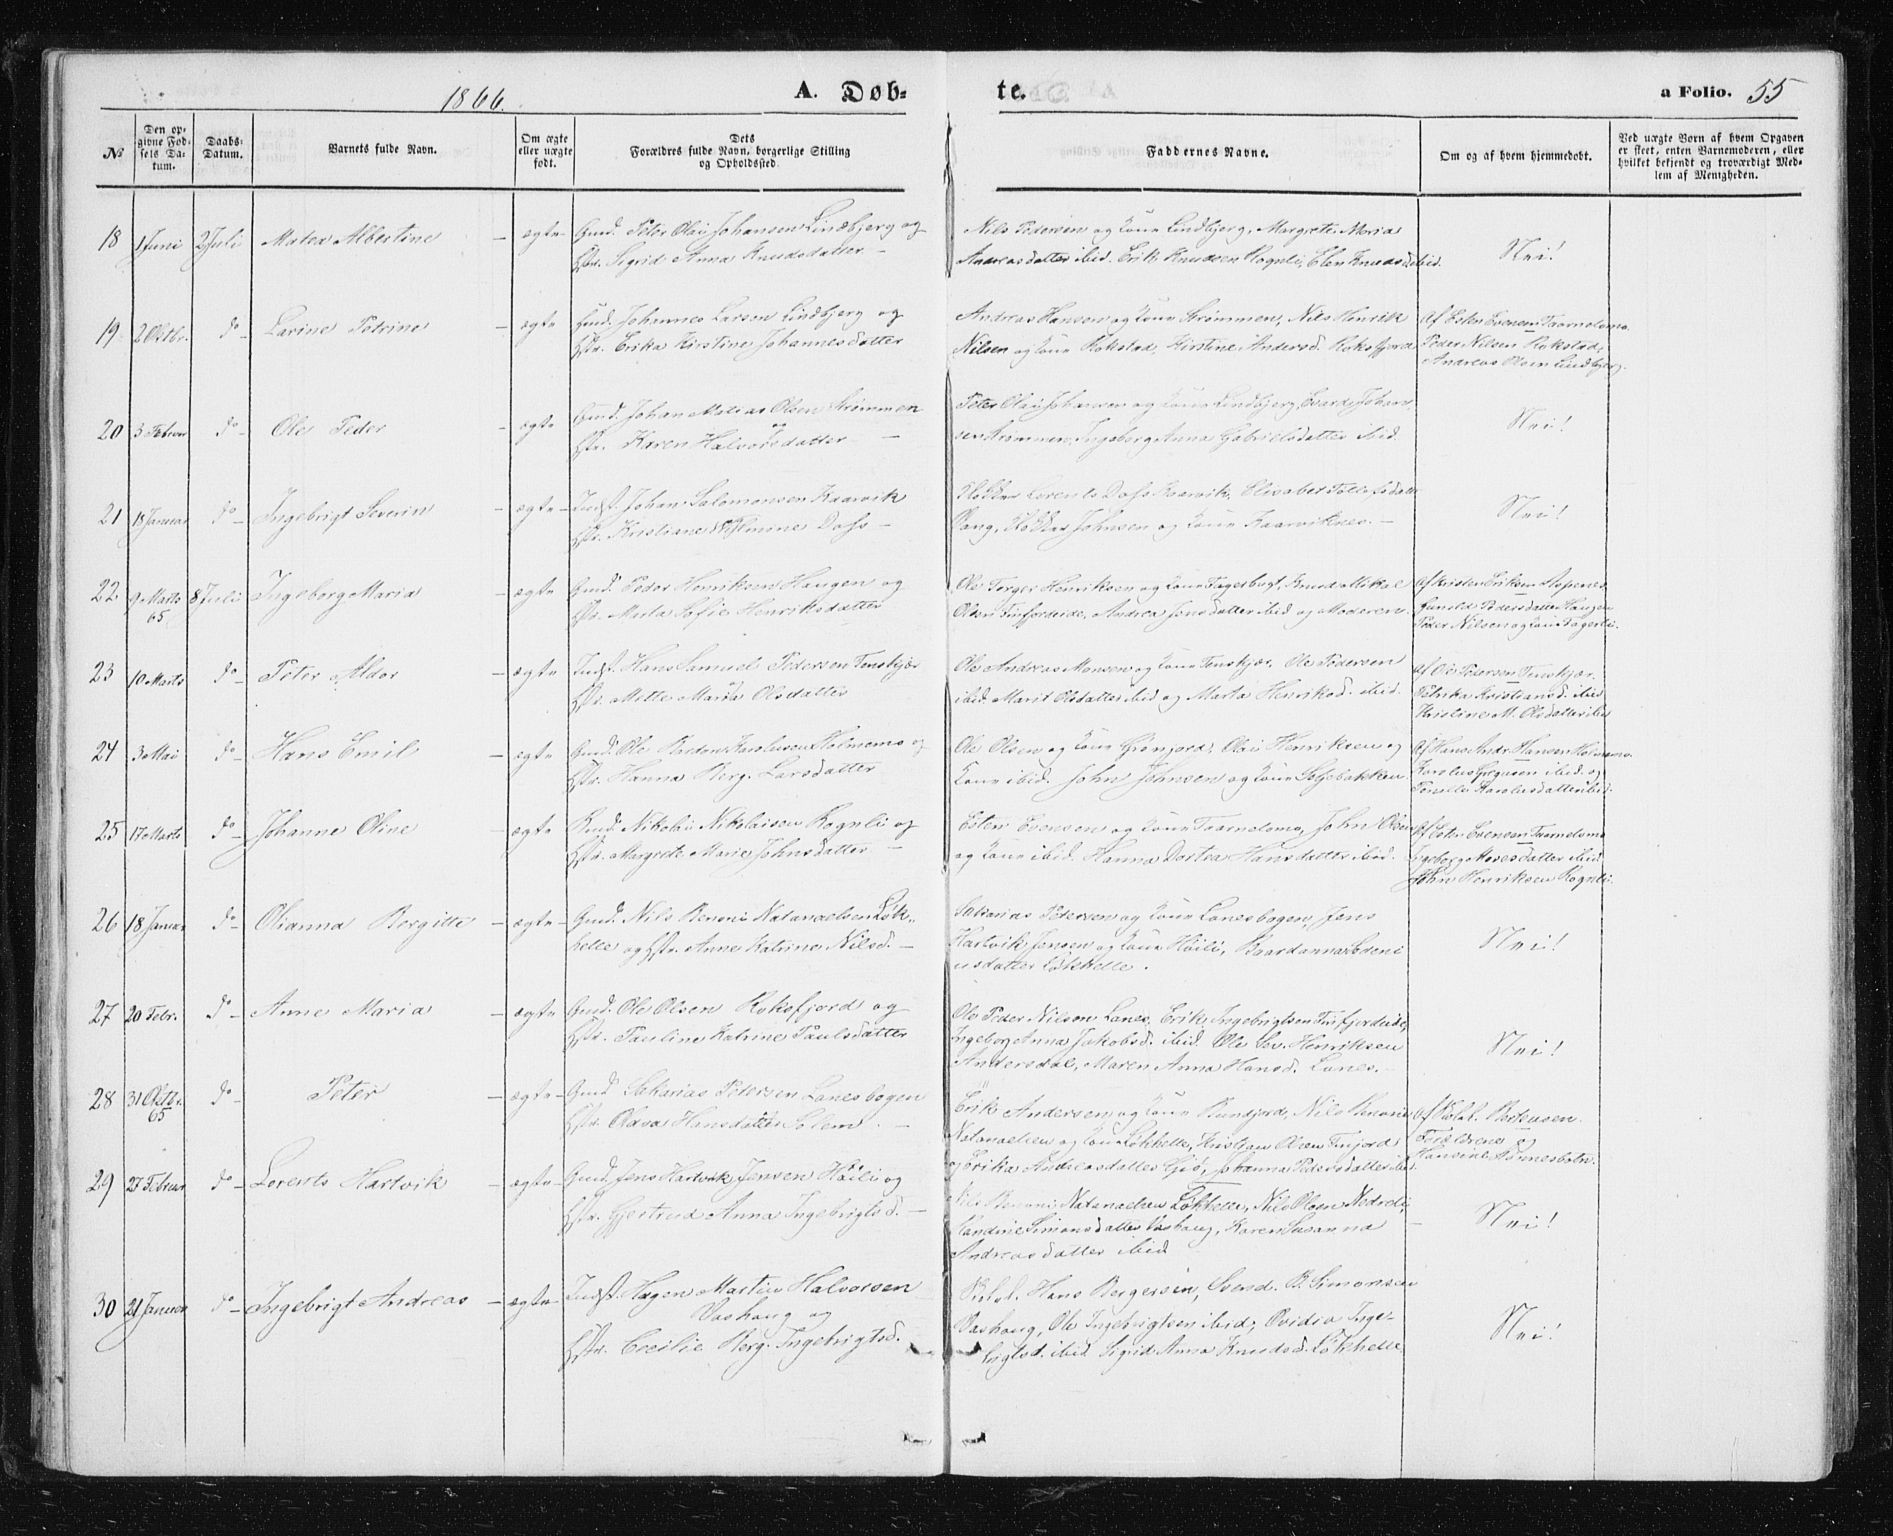 1866.
A. Døb-
te.
a Folio. 55
№
Den op-
givne Fød-
sels Da-
tum.
Daabs-
Datum.
Barnets fulde Navn.
Om ægte
eller uægte
født.
Dets
Forældres fulde Navn, borgerlige Stilling
og Opholdssted.
Faddernes Navne.
Om og af hvem hjemmedøbt.
Ved uægte Børn af hvem Opgaven
er skeet, enten Barnemoderen, eller
hvilket bekjendt og troværdigt Med-
lem af Menigheden.
18 1 Juni 2 Juli Matea Albertine - ægte Gmd. Peter Olai Johansen Lindbjerg og
Hstr. Sigrid Anna Knudsdatter -
Nils Pedersen og Kone Lindbjerg, Margrete Maria
Andreasdatter ibid. Erik Knudsen Rognli, Elen Knudsd. ibid.
Nei!
19 2 Oktbr. do - Larine Petrine - ægte Gmd. Johannes Larsen Lindbjerg og
Hstr. Erika Kirstine Johannesdatter
Andreas Hansen og Kone Strømmen, Nils Henrik
Nilsen og Kone Rokstad, Kirstine Andersd. Roksfjord
Af Esten Evensen Taarnelomo
Peder Nilsen Rokstad,
Andreas Olsen Lindbjerg.
20 3 Februar do - Ole Peder - ægte Gmd. Johan Matias Olsen Strømmen
og
Hstr. Karen Halvorsdatter -
Peter Olai Johansen og Kone Lindbjerg, Evard Johan-
sen Strømmen, Ingeborg Anna Gabrielsdatter ibid.
Nei!
21 18 Januar do - Ingebrigt Severin - ægte - Indst. Johan Salomonsen Kaarvik
Hstr. Kristiane Dass -
Lorents Dass Kaarvik, Elisabet Tollefsdatter
Vang, Johnsen og Kone Kaarviknes. -
Nei!
22 9 Marts 65 8 Juli Ingeborg Maria - ægte Gmd. Peder Henriksen Haugen og
Hstr. Marta Sofie Henriksdatter
Ole Torger Henriksen og Kone Fagerbugt, Knud Mikal
Olsen Finfjordeide, Andrea Jensdatter ibid og Moderen.
Af Kristen Eriksen Aspenes
Gunild Pedersdatter Haugen
Peder Nilsen og Kone Fagerli.
23 10 Marts do - Peter Aldor - ægte Indst. Hans Samuel Pedersen Tenskjær
Hstr. Mette Maria Olsdatter
Ole Andreas Monsen og Kone Tenskjær, Ole Pedersen
ibid. Marit Olsdatter ibid og Marta Henriksd. ibid.
Af Ole Pedersen Tenskjær.
Petrika Kristiansd. ibid
Kristine M. Olsdatter ibid
24 3 Mai do - Hans Emil - ægte Gmd. Ole Karolusen Holmemo og
Hstr. Hanna Berg. Larsdatter
Ole Olsen og Kone Grønjord, Olai Henriksen og
Kone ibid. John Johnsen og Kone Seljebakken.
Af Hans Andr. Hansen Holmemo.
Karolus ibid. og
Pernille Karolusdatter ibid.
25 17 Marts do - Johanne Oline - ægte Gmd. Nikolai Nikolaisen Rognli og
Hstr. Margrete Marie Johnsdatter -
Esten Evensen og Kone Taarnelomo, John Olsen
og Kone ibid. Hanna Dortea Hansdatter ibid.
Af Esten Evensen Taarnelomo
Ingeborg Mosesdatter ibid
John Henriksen Rognli.
26 18 Januar do - Olianna Bergitte - ægte - Gmd. Nils Benoni Natanaelsen Løk-
helle og Hstr. Anne Katrine Nilsd. -
Sakarias Petersen og Kone Lanesbogen, Jens
Hartvik Jensen og Kone Høili,
usdatter Løkhelle.
Nei!
27 20 Febr. do - Anne Maria - ægte Gmd. Ole Olsen Roksfjord og
Hstr. Pauline Katrine Paulsdatter
Ole Peder Nilsen Lanes, Erik Ingebrigtsen Finfjordeide,
Ingeborg Anna Jakobsd. ibid. Ole Sev. Henriksen
Andersdal, Maren Anna Hansd. Lanes. -
Nei!
28 31 Oktbr. 65 do - Peter - ægte - Gmd Sakarias Petersen Lanesbogen
Hstr. Olava Hansdatter Solem. -
Erik Andersen og Kone Rundjord, Nils Benoni
Natanaelsen og Kone Løkhelle, Kristian Olsen Finjord
og Erika Andreasdatter Gjø, Johanna Pedersdatter ibid.
Bertensen
Forældrene og
Hansine Tønnesbotn.
29 27 Februar do - Lorents Hartvik - ægte - Gmd. Jens Hartvik Jensen Høili og
Hstr. Gjertrud Anna Ingebrigtsd. -
Nils Benoni Natanaelsen Løkhelle, Nils Olsen Nedreli,
Simonsdatter Vashaug, Karen Susanna
Andreasdatter ibid
Nei!
30 21 Januar do - Ingebrigt Andreas - ægte - Indst. Hagen Martin Halvorsen
Vashaug og
Hstr. Cecilie Berg. Ingebrigtsd.
Hans Bergersen, Svend. B. Simonsen
Vashaug, Ole Ingebrigtsen ibid, Ovidia Inge-
brigtsd. ibid Sigrid Anna Knudsd. Løkhelle.
Nei!